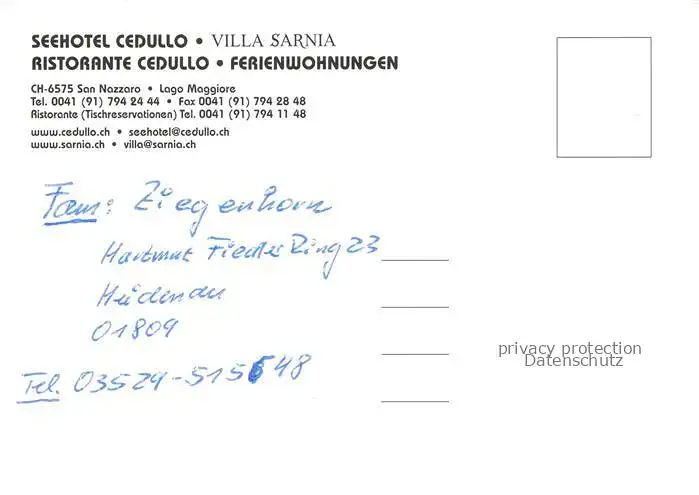 SEEHOTEL CEDULLO • VILLA SARNIA
RISTORANTE CEDULLO • FERIENWOHNUNGEN
CH-6575 San Nazzaro • Lago Maggiore
Tel. 0041 (91) 794 24 44 • Fax 0041 (91) 794 28 48
Ristorante (Tischreservationen) Tel. 0041 (91) 794 11 48
www.cedullo.ch • seehotel@cedullo.ch
www.sarnia.ch • villa@sarnia.ch
Fam: Ziegenhorn
Hartmut Fiedler Ring 23
Heidenau
01809
Tel. 03524-515 48
privacy protection
Datenschutz